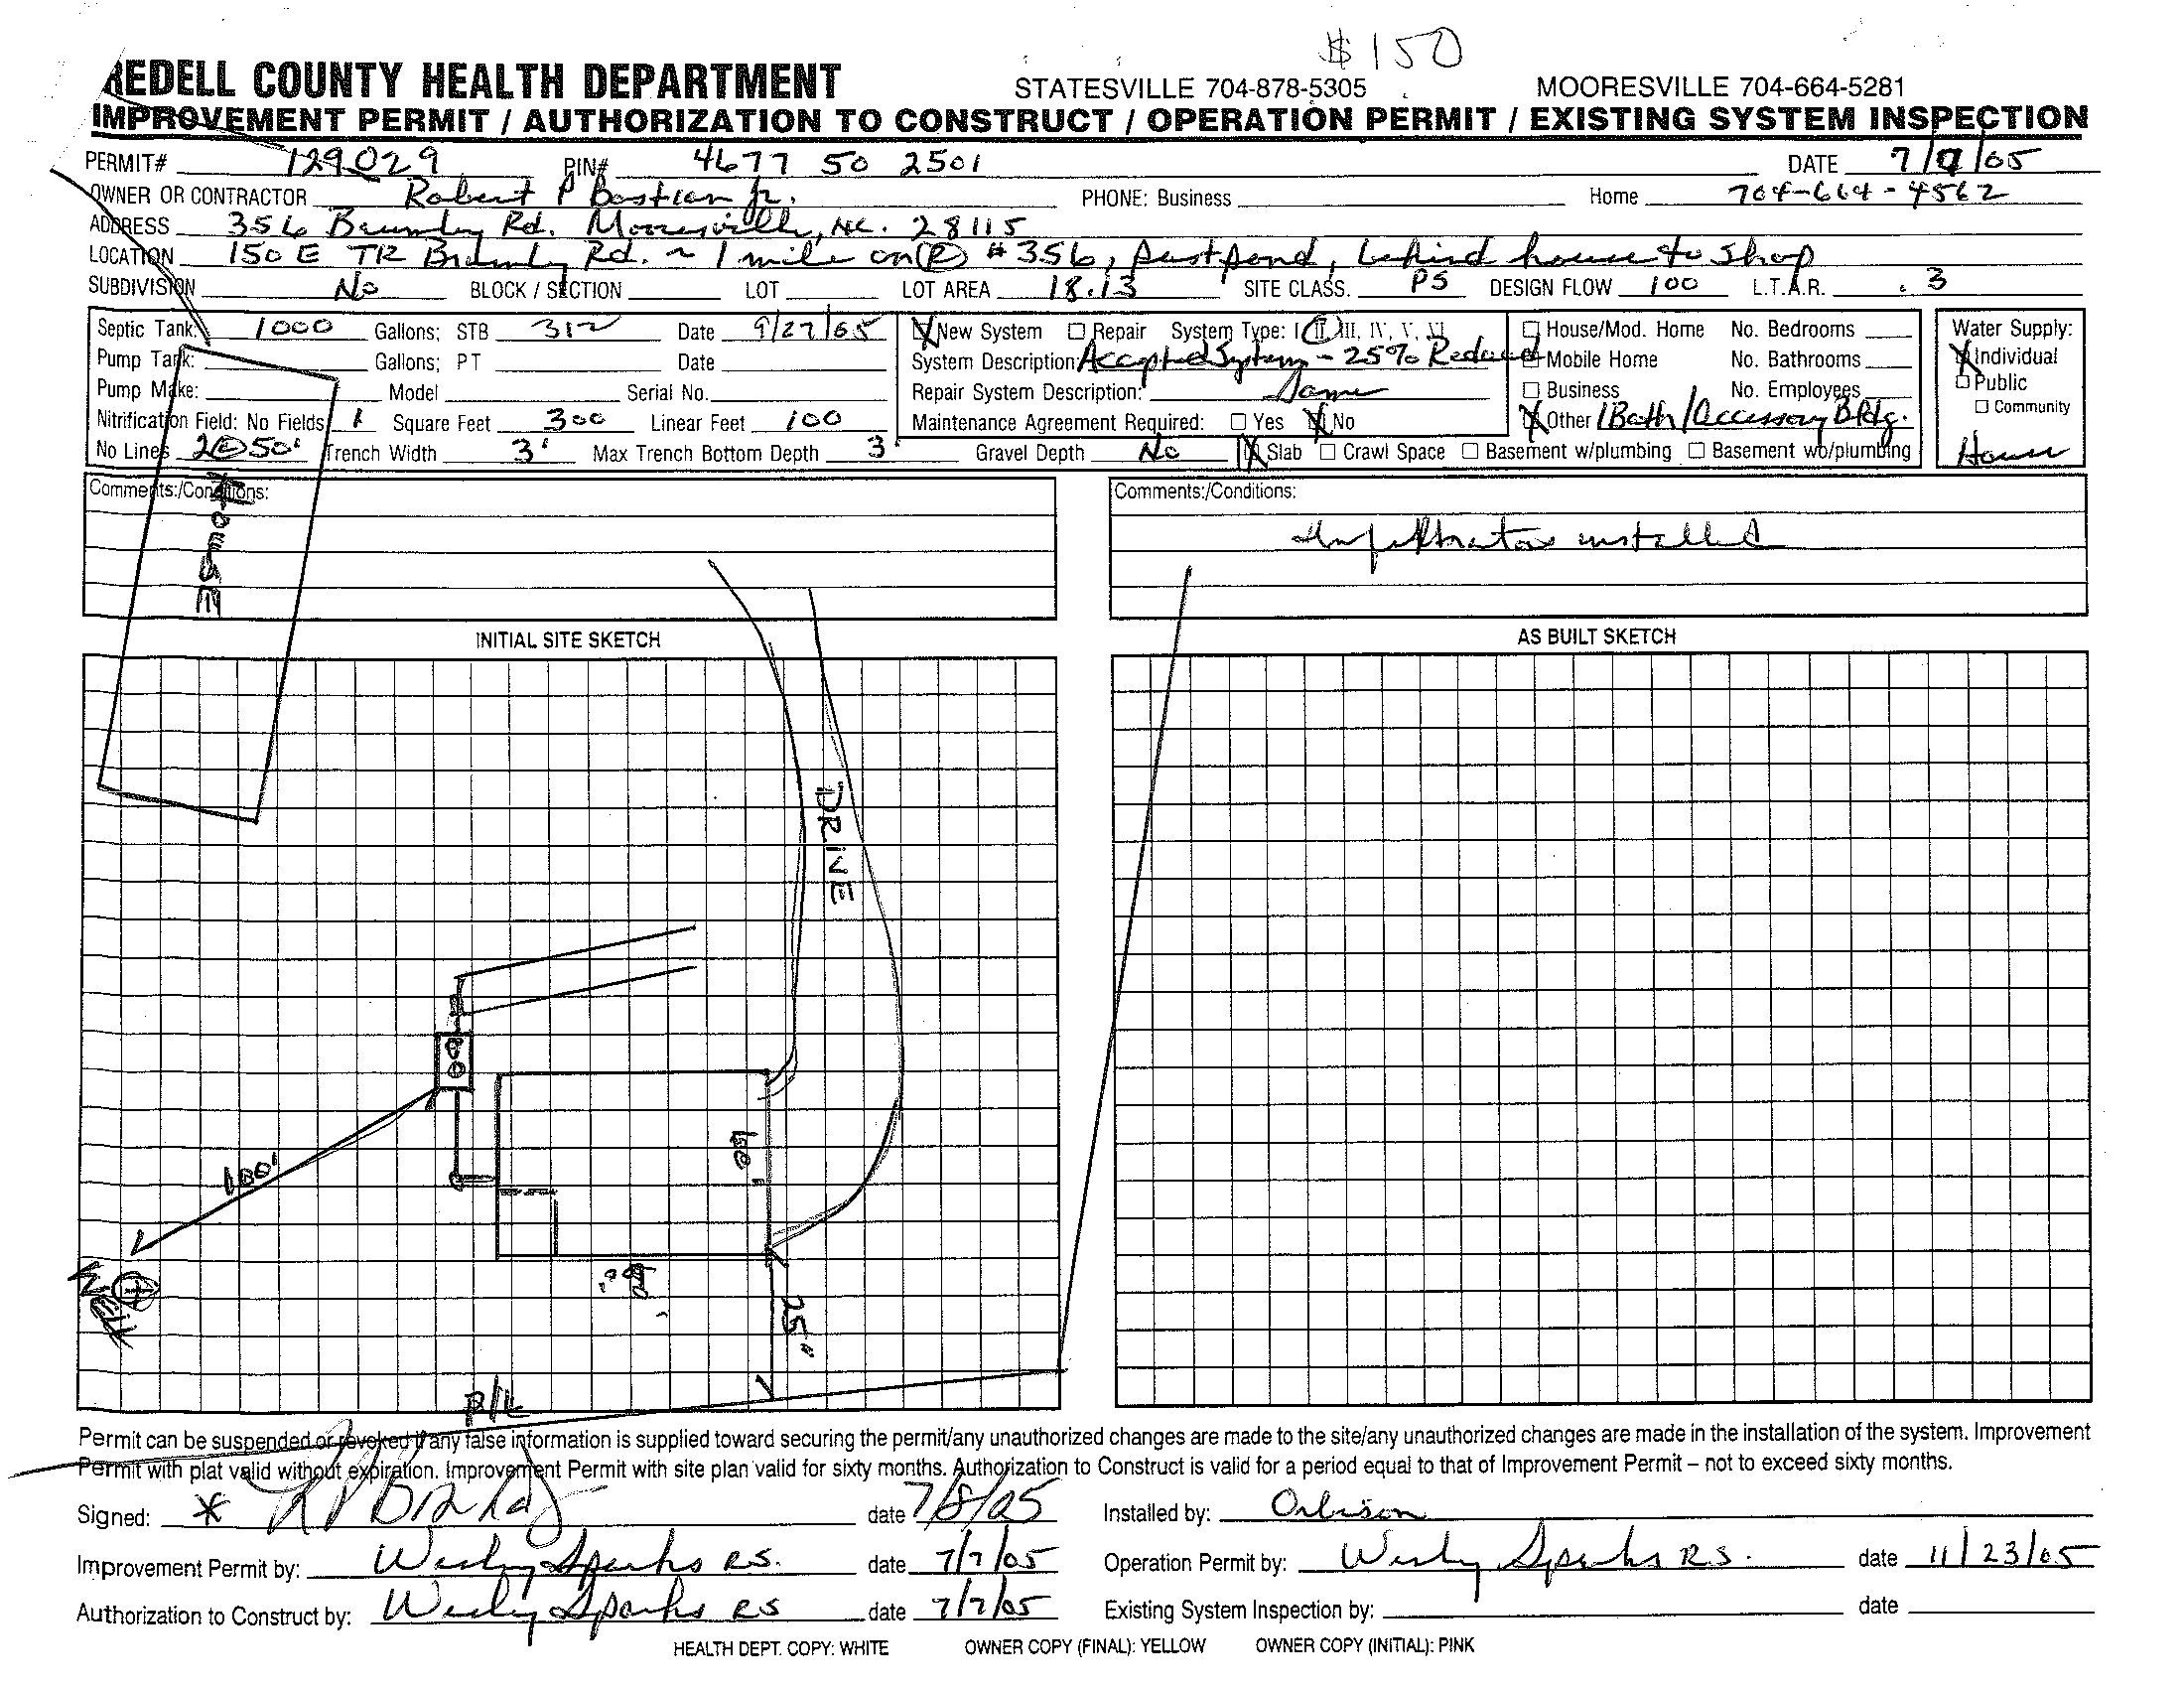 $150
REDELL COUNTY HEALTH DEPARTMENT STATESVILLE 704-878-5305 MOORESVILLE 704-664-5281
IMPROVEMENT PERMIT / AUTHORIZATION TO CONSTRUCT / OPERATION PERMIT / EXISTING SYSTEM INSPECTION
PERMIT# 129029 PIN# 4677 50 2501 DATE 7/7/05
OWNER OR CONTRACTOR Robert P Bastian Jr. PHONE: Business Home 704-664-4562
ADDRESS 356 Brumley Rd. Mooresville, NC. 28115
LOCATION 150 E TR Brumley Rd. ~ 1 mile on (R) #356, past pond, behind house to shop
SUBDIVISION No BLOCK / SECTION LOT LOT AREA 18.13 SITE CLASS. PS DESIGN FLOW 100 L.T.A.R. .3
Septic Tank: 1000 Gallons; STB 312 Date 9/27/05 New System Repair System Type: I, II, III, IV, V, VI House/Mod. Home No. Bedrooms Water Supply:
Pump Tank: Gallons; PT Date System Description: Accepted System - 25% Reduced Mobile Home No. Bathrooms Individual
Pump Make: Model Serial No. Repair System Description: Same Business No. Employees Public
Nitrification Field: No Fields 1 Square Feet 300 Linear Feet 100 Maintenance Agreement Required: Yes No Other 1 Bath/Accessory Bldg. Community
No Lines 2@50' Trench Width 3' Max Trench Bottom Depth 3' Gravel Depth No Slab Crawl Space Basement w/plumbing Basement wo/plumbing House
Comments:/Conditions: Comments:/Conditions:
HOUSE
Infiltrator installed
INITIAL SITE SKETCH AS BUILT SKETCH
DRIVE
60'
100'
WELL
25'
P/L
Permit can be suspended or revoked if any false information is supplied toward securing the permit/any unauthorized changes are made to the site/any unauthorized changes are made in the installation of the system. Improvement
Permit with plat valid without expiration. Improvement Permit with site plan valid for sixty months. Authorization to Construct is valid for a period equal to that of Improvement Permit – not to exceed sixty months.
Signed: * date 7/8/05 Installed by: Orbison
Improvement Permit by: Wesley Sparks R.S. date 7/7/05 Operation Permit by: Wesley Sparks R.S. date 11/23/05
Authorization to Construct by: Wesley Sparks RS date 7/7/05 Existing System Inspection by: date
HEALTH DEPT. COPY: WHITE OWNER COPY (FINAL): YELLOW OWNER COPY (INITIAL): PINK